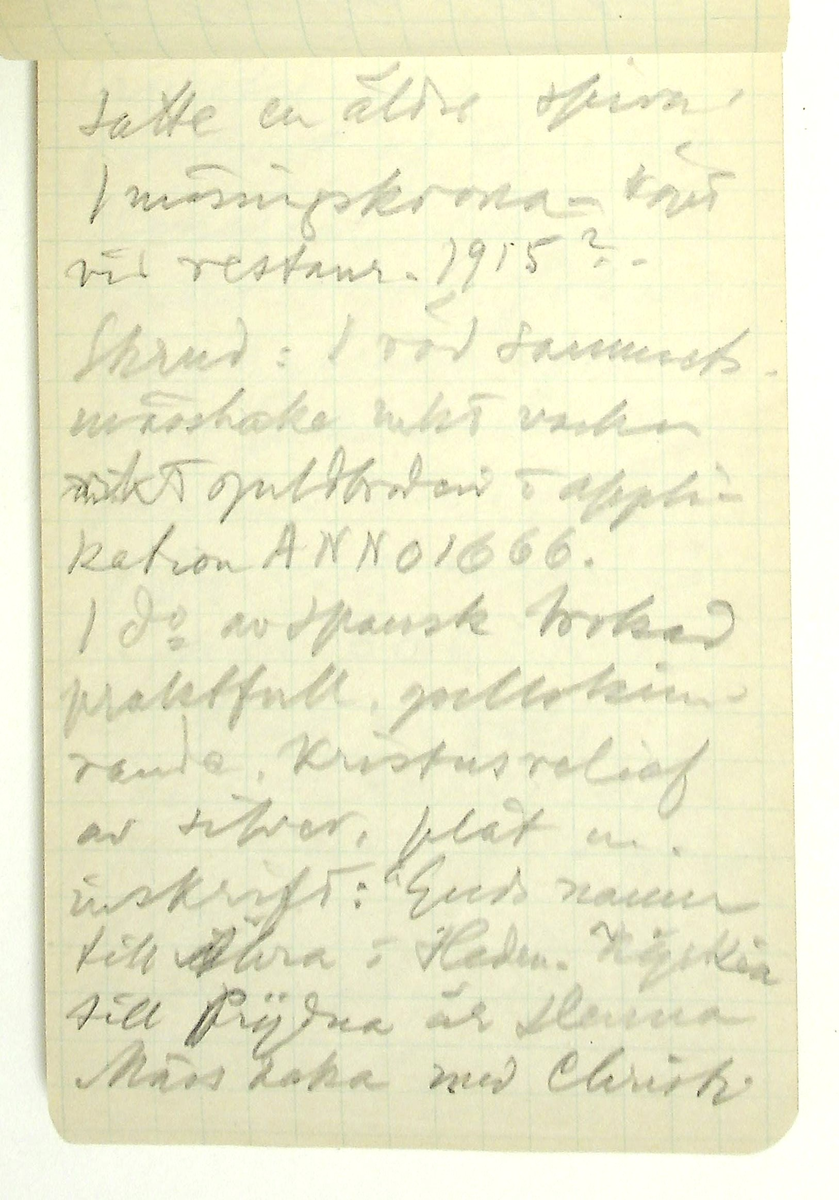 satte en äldre spira.
1 mässingskrona – köpt
vid restaur. 1915?.
Skrud: 1 röd sammets-
mässhake mkt vacker
rikt guldbroderi o appli-
kation ANNO 1666.
1 do av spansk brokad
praktfull, guldskim-
rande. Kristusrelief
av silver, plåt m.
inskrift: "Guds namn
till Ähra i Staden. Kyrkia
till Prÿdna är Henna
Mäss haka med Christi